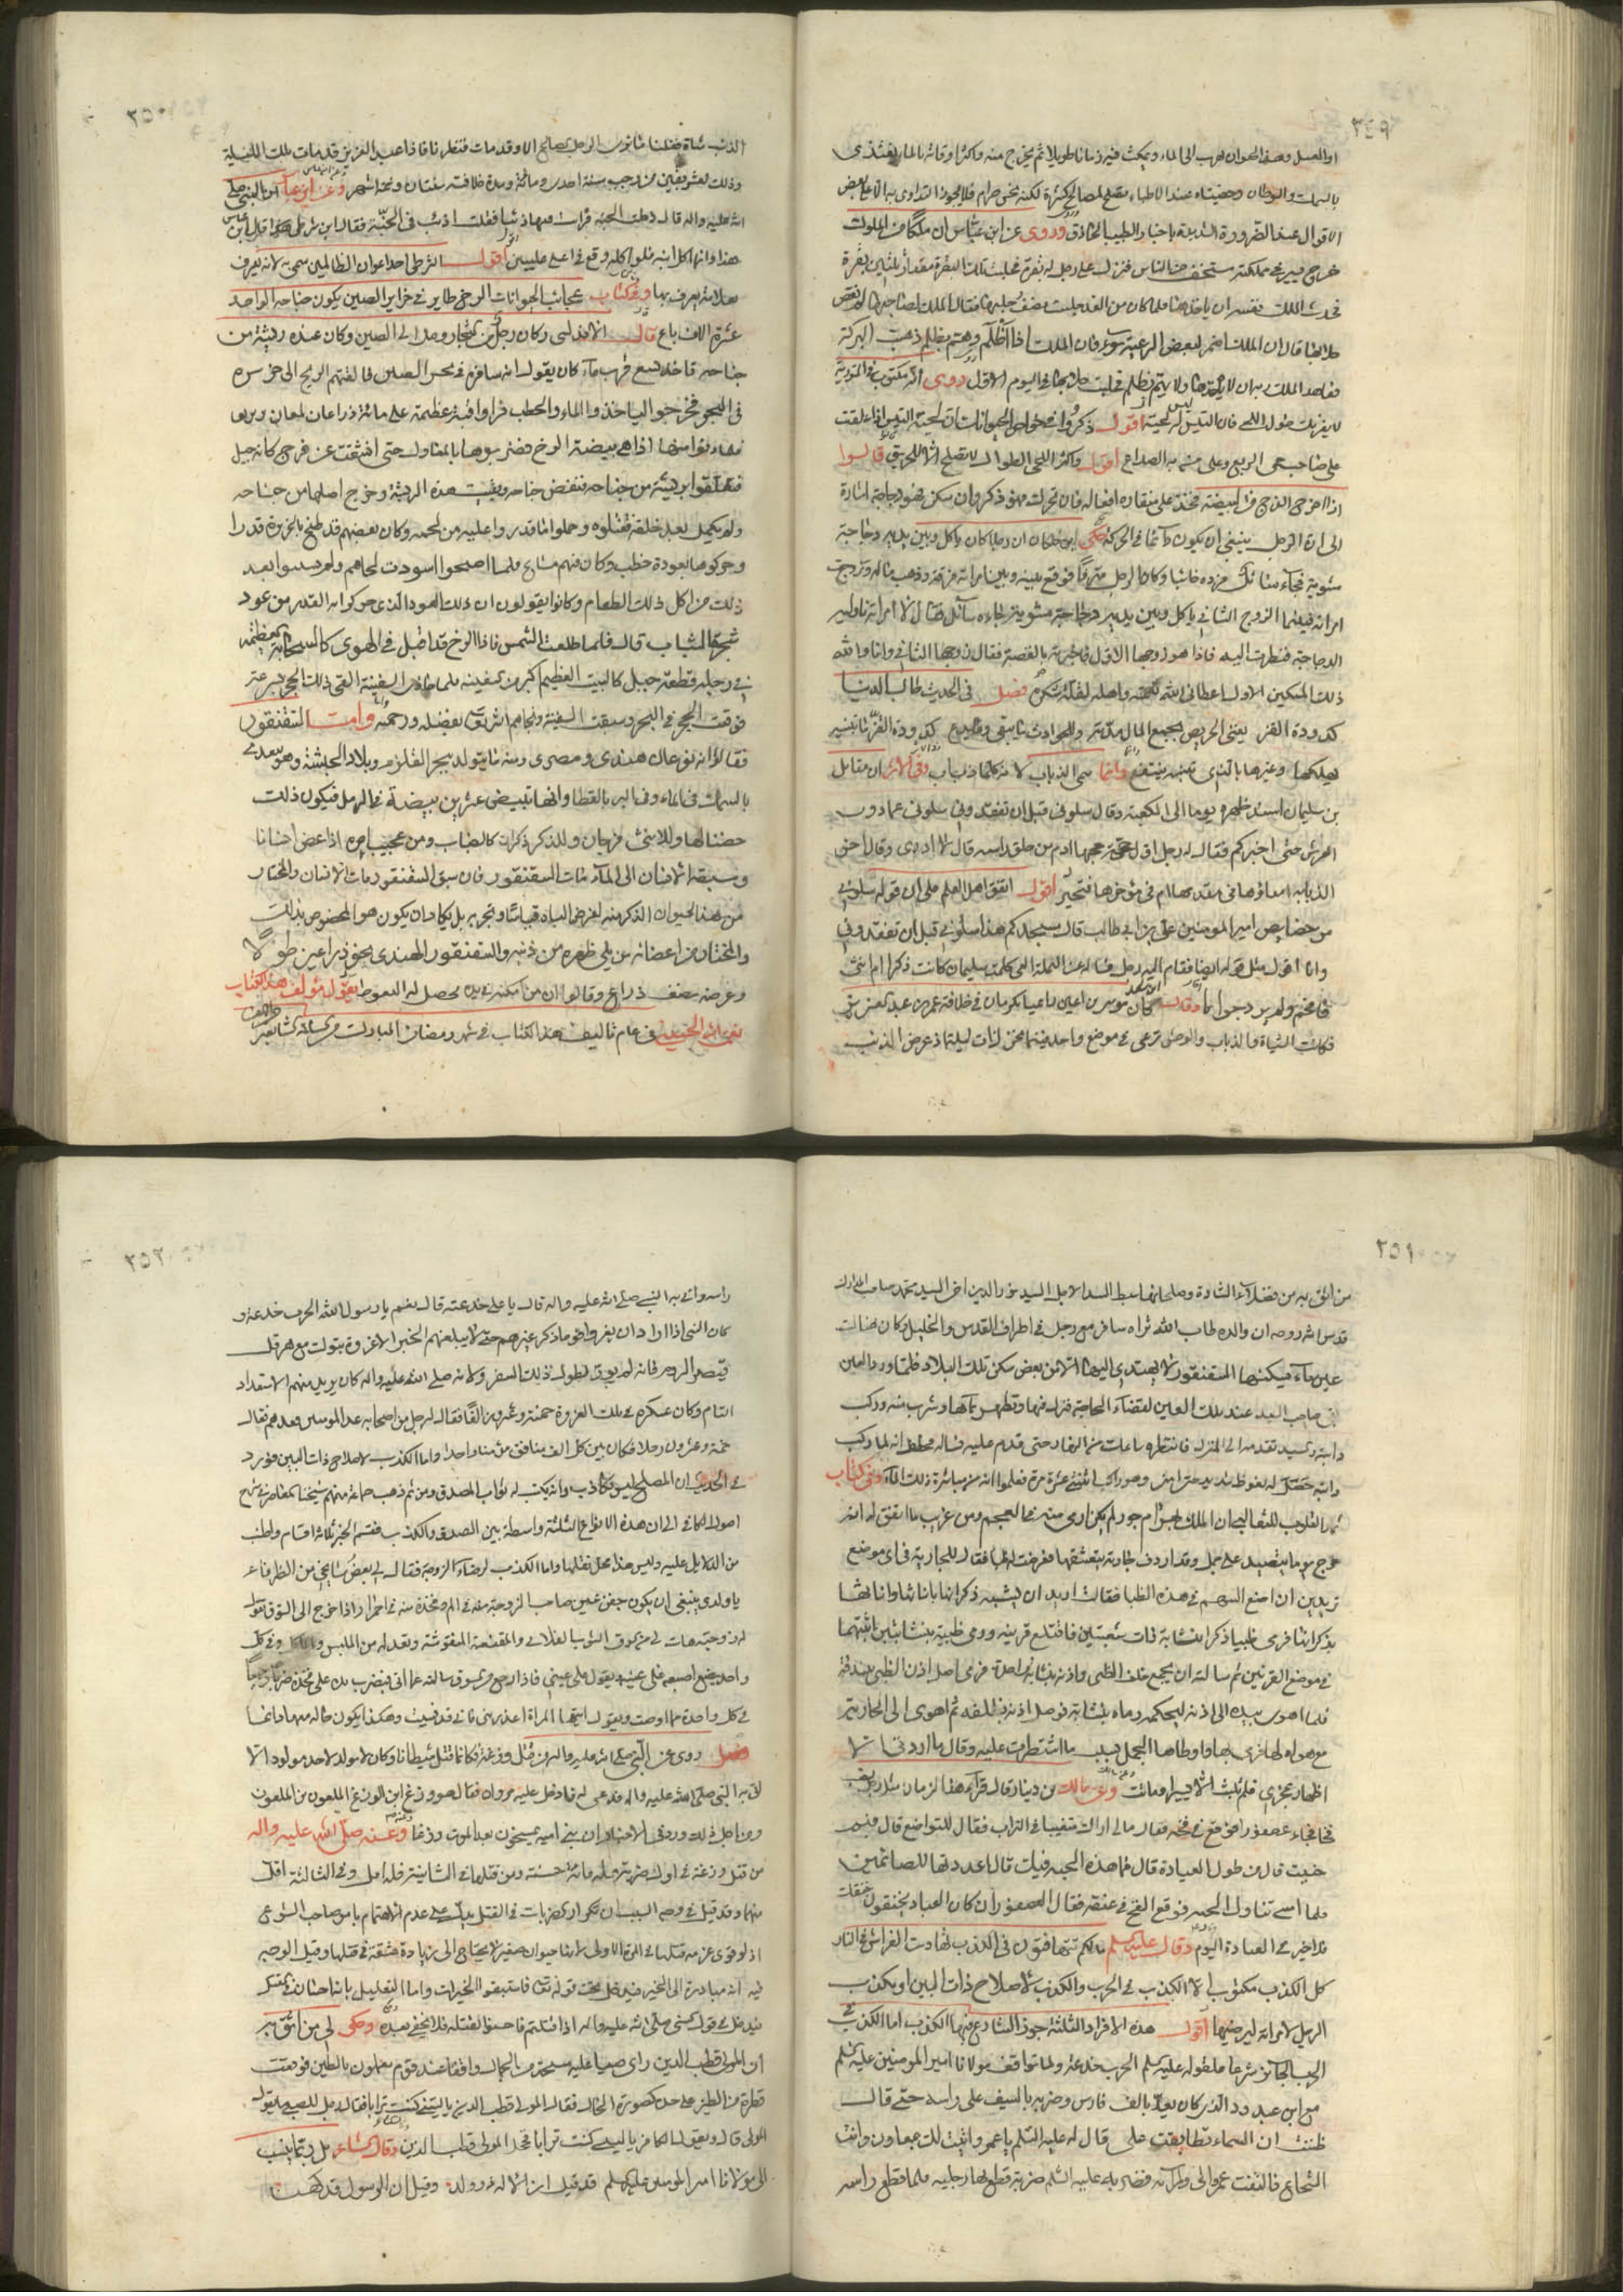 ٣٤٩
او العسل وهذا الحيوان يهرب الى الماء ويمكث فيه زمانا طويلا ثم يخرج منه واكثر اوقاته بالماء يغتذى
بالسمك والسرطان وخصيتاه عند الاطباء تصلح لمصالح كثيرة لكنه نجس حرام فلا يجوز التداوى به الا على بعض
الاقوال عند الضرورة الشديدة باخبار الطبيب الحاذق وروى عن ابن عباس ان ملكا من الملوك
خرج يسير فى مملكته مستخف من الناس فنزل على رجل له بقرة فحلبت تلك البقرة مقدار ثلثين بقرة
فحدث الملك نفسه ان ياخذها فلما كان من الغد حلبت نصف حلبها فقال الملك لصاحبها لم نقص
حلابها قال ان الملك اضمر لبعض الرعية سوء فان الملك اذا ظلم وهم بظلم ذهبت البركة
فعاهد الملك ربه ان لا ياخذها ولا يهم بظلم فحلبت حلابها فى اليوم الاول روى انه مكتوب فى التورية
لا يغرنك طول اللحى فان التيس له لحية اقول ذكروا فى خواص الحيوانات ان لحية التيس اذا علقت
على صاحب حمى الربع وعلى من به الصداع اقول واكثر اللحى الطوال لا تصلح الا للحريق قالوا
اذا خرج الفروج من البيضة فخذ على منقاره فان تحرك فهو ذكر وان سكن فهو دجاجة اشارة
الى ان الرجل ينبغى ان يكون دائما فى الحركة حكى ابن خلكان ان رجلا كان ياكل وبين يديه دجاجة
مشوية فجاءه سائل فرده خائبا وكان الرجل مترفا فوقع بينه وبين امراته فرقة وذهب ماله وتزوجت
امراته فبينما الزوج الثانى ياكل وبين يديه دجاجة مشوية جاءه سائل فقال لامراته ناوليه
الدجاجة فنظرت اليه فاذا هو زوجها الاول فاخبرته بالقصة فقال زوجها الثانى وانا والله
ذلك المسكين الاول اعطانى الله نعمته واهله لقلة شكره فصل فى الحديث طالب الدنيا
كدودة القز يعنى الحريص بجمع المال مدته وللحوادث ما يبقى وما يدع كدودة القز ما تبنيه
يهلكها وغيرها بالذى تبنيه ينتفع وانما سمى الذباب لانه كلما ذب اب وفى الاثر ان مقاتل
بن سليمان اسند ظهره يوما الى الكعبة وقال سلونى قبل ان تفقدونى سلونى عما دون
العرش حتى اخبركم فقال له رجل اول حجة حجها ادم من حلق راسه قال لا ادرى وقال اخر
الذبابة امعاؤها فى مقدمها ام فى مؤخرها فتحير اقول اتفق اهل العلم على ان قوله سلونى
من خصايص امير المومنين على بن ابى طالب قال سيجئكم بعدى سلونى قبل ان تفقدونى
وانا اقول مثل قوله ايضا فقام اليه رجل فساله عن النملة التى كلمت سليمان كانت ذكرا ام انثى
فافحم ولم يرد جوابا وقال كان موسى بن اعين راعيا بكرمان فى خلافة عمر بن عبد العزيز
فكانت الشياة والذياب والوحش ترعى فى موضع واحد فبينما نحن ذات ليلة اذ عرض الذئب
٣٥٠
الذئب شاة فقلنا ما نرى الرجل الصالح الا وقد مات فنظرنا فاذا عبد العزيز قد مات تلك الليلة
وذلك لعشر بقين من رجب سنة احدى ومائة ومدة خلافته سنتان ونحو اشهر وعن ابن عباس ان النبى صلى
الله عليه واله قال دخلت الجنة فرايت فيها ذئبا فقلت اذئب فى الجنة فقال ابن شرطى قال ابن عباس
هذا وانما اكل ابنه فلو اكله رفع فى اعلى عليين اقول الشرطى احد اعوان الظالمين سمى به لانه يعرف
بعلامة يعرف بها وفى كتاب عجائب الحيوانات الرخ طاير فى جزاير الصين يكون جناحه الواحد
عشرة الاف باع قال الاندلسى وكان رجل من التجار وصل الى الصين وكان عنده ريشة من
جناحه قاعدة تسع قربة ماء كان يقول انه سافر مرة فى بحر الصين فالقتهم الريح الى جزيرة
فى البحر فخرجوا لياخذوا الماء والحطب فراوا قبة عظيمة على مائة ذراع لها لمعان وبريق
فلما دنوا منها اذا هى بيضة الرخ فضربوها بالمعاول حتى انشقت عن فرخ كانه جبل
فتعلقوا بريشة من جناحه فنفض جناحه وبقيت هذه الريشة وخرج اصلها من جناحه
ولم يكمل بعد خلقه فقتلوه وحملوا ما قدروا عليه من لحمه وكان بعضهم قد طبخ بالجزيرة قدرا
وحركوها بعودة حطب وكان فيهم مشايخ فلما اصبحوا اسودت لحاهم ولم يشيبوا بعد
ذلك من اكل ذلك الطعام وكانوا يقولون ان ذلك العود الذى حركوا به القدر من عود
شجرة الشباب قال فلما طلعت الشمس فاذا الرخ قد اقبل فى الهوى كالسحابة العظيمة
فى رجله قطعة جبل كالبيت العظيم اكبر من السفينة فلما حاذى السفينة القى ذلك الحجر بسرعة
فوقعت الحجر فى البحر وسبقت السفينة ونجاهم الله تعالى بفضله ورحمته واما السقنقور
فقالوا انه نوعان هندى ومصرى ومنه ما يتولد ببحر القلزم وبلاد الحبشة وهو يغتذى
بالسمك فى الماء وفى البر بالقطا وانثاه تبيض عشرين بيضة فى الرمل فيكون ذلك
حضنا لها وللانثى فرجان وللذكر ذكران كالضباب ومن عجيب امره اذا عض انسانا
وسبقه الانسان الى الماء مات السقنقور وان سبق السقنقور مات الانسان والمختار
من هذا الحيوان الذكر فانه لغرض الباه قياسا وتجربة بل يكاد ان يكون هو المخصوص بذلك
والمختار من اعضائه من يلى ظهره من ذنبه والسقنقور الهندى نحو ذراعين طولا
وعرضه نصف ذراع وقالوا ان من امسكه فى يده يحصل له النعوظ يقول مؤلف هذا الكتاب
نعمة الله الحسينى فى عام تاليف هذا الكتاب فى شهر رمضان المبارك
٣٥١
من اثق به من فضلاء السادة وصلحائها سبط السيد الاجل السيد نور الدين اخى السيد محمد صاحب المدارك
قدس الله روحه ان والده طاب الله ثراه سافر مع رجل فى اطراف القدس والخليل وكان هناك
عين ماء يسكنها السقنقور لا يهتدى اليها الا من بعض سكن تلك البلاد فلما ورد العين
اتى صاحب السيد عند تلك العين لقضاء الحاجة فنزل فيها وتطهر بمائها وشرب منه وركب
دابته والسيد تقدمه الى المنزل فانتظره ساعات من النهار حتى قدم عليه فساله فحكى انه لما ركب
دابته حصل له نعوظ شديد وهو راكب اثنتى عشرة مرة فعلموا انه من مباشرة ذلك الماء وفى كتاب
ثمار القلوب للثعالبى ان الملك بهرام جور لم يكن ارمى منه فى العجم ومن غريب ما اتفق له انه
خرج يوما يتصيد على جمل وقد اردف جارية يتعشقها فعرضت له ظبا فقال للجارية فى اى موضع
تريدين ان اضع السهم فى هذه الظبا فقالت اريد ان تشبه ذكرانها باناثها واناثها
بذكرانها فرمى ظبيا ذكرا بنشابة ذات شعبتين فاقتلع قرنيه ورمى ظبية بنشابتين اثبتهما
فى موضع القرنين ثم سالته ان يجمع ظلف الظبى واذنه بنشابة واحدة فرمى اصل اذن الظبى ببندقة
فلما اهوى بيده الى اذنه ليحكها رماه بنشابة فوصل اذنه بظلفه ثم اهوى الى الجارية
مع هواه لها فرمى بها واوطاها الجمل بسبب ما اشتطت عليه وقال ما اردت الا
اظهار عجزى فلم تلبث الا يسيرا وماتت وعن مالك بن دينار قال قراء هذا الزمان مثل رجل نصب
فخا فجاء عصفور فوقع فى فخه فقال مالى اراك متغيبا فى التراب فقال للتواضع قال فبم
حنيت قال من طول العبادة قال فما هذه الحبة فيك قال اعددتها للصائمين
فلما امسى تناول الحبة فوقع الفخ فى عنقه فقال العصفور ان كان العباد يخنقون خنقك
فلا خير فى العبادة اليوم وقال عليه السلم مالكم تتهافتون فى الكذب تهافت الفراش فى النار
كل الكذب مكتوب الا الكذب فى الحرب والكذب لاصلاح ذات البين او يكذب
الرجل لامراته ليرضيها اقول هذه الافراد الثلثة جوز الشارع فيها الكذب اما الكذب فى
الحرب الجائز شرعا فلقوله عليه السلم الحرب خدعة ولما تواقف مولانا امير المومنين عليه السلم
مع ابن عبد ود الذى كان يعد بالف فارس وضربه بالسيف على راسه حتى قال
ظننت ان السماء تطابقت على قال له عليه السلم يا عمرو اتيت لك بمعاون وانت
الشجاع فالتفت عمرو الى ورائه فضربه عليه السلم ضربة قطع بها رجليه فلما قطع راسه
٣٥٢
راسه واتى به النبى صلى الله عليه واله قال يا على خدعته قال نعم يا رسول الله الحرب خدعة و
كان النبى اذا اراد ان يغزو قوما ذكر غيرهم حتى لا يبلغهم الخبر الا غزوة تبوك مع هرقل
قيصر الروم فانه لم يور لطول ذلك السفر ولانه صلى الله عليه واله كان يريد منهم الاستعداد
التام وكان عسكره فى تلك الغزوة خمسة وعشرين الفا فقال له رجل من اصحابه عد المومنين فعدهم فقال
خمسة وعشرون رجلا فكان بين كل الف منافق مؤمنا واحدا واما الكذب لاصلاح ذات البين فورد
فى الحديث ان المصلح ليس بكاذب وانه يكتب له ثواب الصدق ومن ثم ذهب جماعة منهم شيخنا المعاصر فى شرح
اصول الكافى الى ان هذه الانواع الثلثة واسطة بين الصدق والكذب فقسم الخبر ثلاثة اقسام واطنب
من الدلايل عليه وليس هذا محل نقلها واما الكذب لرضاء الزوجة فقال لى بعض مشايخى من الظرفاء
يا ولدى ينبغى ان يكون جفن عين صاحب الزوجة منه فى الم وفخذه منه فى احمرار اذا خرج الى السوق تقول
له زوجته هات لى من السوق الثوب الفلانى والمقنعة المنقوشة وتعد له من الملبس وفى كل
واحد يضع اصبعه على عينيه ويقول على عينى فاذا رجع من السوق سالته عما اتى فيضرب يده على فخذه ضربا وجيعا
فى كل واحدة مما اوصت ويقول ايتها المراة اعذرينى فانى قد نسيت وهكذا يكون حاله معها دائما
فصل روى عن النبى صلى الله عليه واله من قتل وزغة فكانما قتل شيطانا وكان لا يولد لاحد مولود الا
اتى به النبى صلى الله عليه واله فدعى له فادخل عليه مروان فقال هو وزغ ابن الوزغ الملعون بن الملعون
ومن اجل ذلك ورد فى الاخبار ان بنى امية يمسخون بعد الموت وزغا وعنه صلى الله عليه واله
من قتل وزغة فى اول ضربة فله مائة حسنة ومن قتلها فى الثانية فله اقل وفى الثالثة اقل
منهما وقد قيل فى وجه السبب ان تكرار الضربات فى القتل يدل على عدم الاهتمام بامر صاحب الشرع
اذ لو قوى عزمه لقتلها فى المرة الاولى لانها حيوان صغير لا يحتاج الى زيادة مشقة فى قتلها وقيل الوجه
فيه انه مبادرة الى الخير فيدخل تحت قوله تعالى فاستبقوا الخيرات واما التعليل بانه احسان فى القتل
فيدخل فى قول النبى صلى الله عليه واله اذا قتلتم فاحسنوا القتلة فلا يخفى بعده وحكى لى من اثق به
ان المولى قطب الدين راى صبيا عليه مسحة من الجمال واقفا عند قوم يعملون بالطين فوقعت
قطرة من الطين على خده كصورة الخال فقال المولى قطب الدين يا ليتنى كنت ترابا فقال رجل للصبى ما يقول
المولى قال ويقول الكافر يا ليتنى كنت ترابا فخجل المولى قطب الدين وقال الشاعر بل ربما ينسب
الى مولانا امير المومنين عليه السلم قد قيل ان الاله ذو ولد وقيل ان الرسول قد كهنا